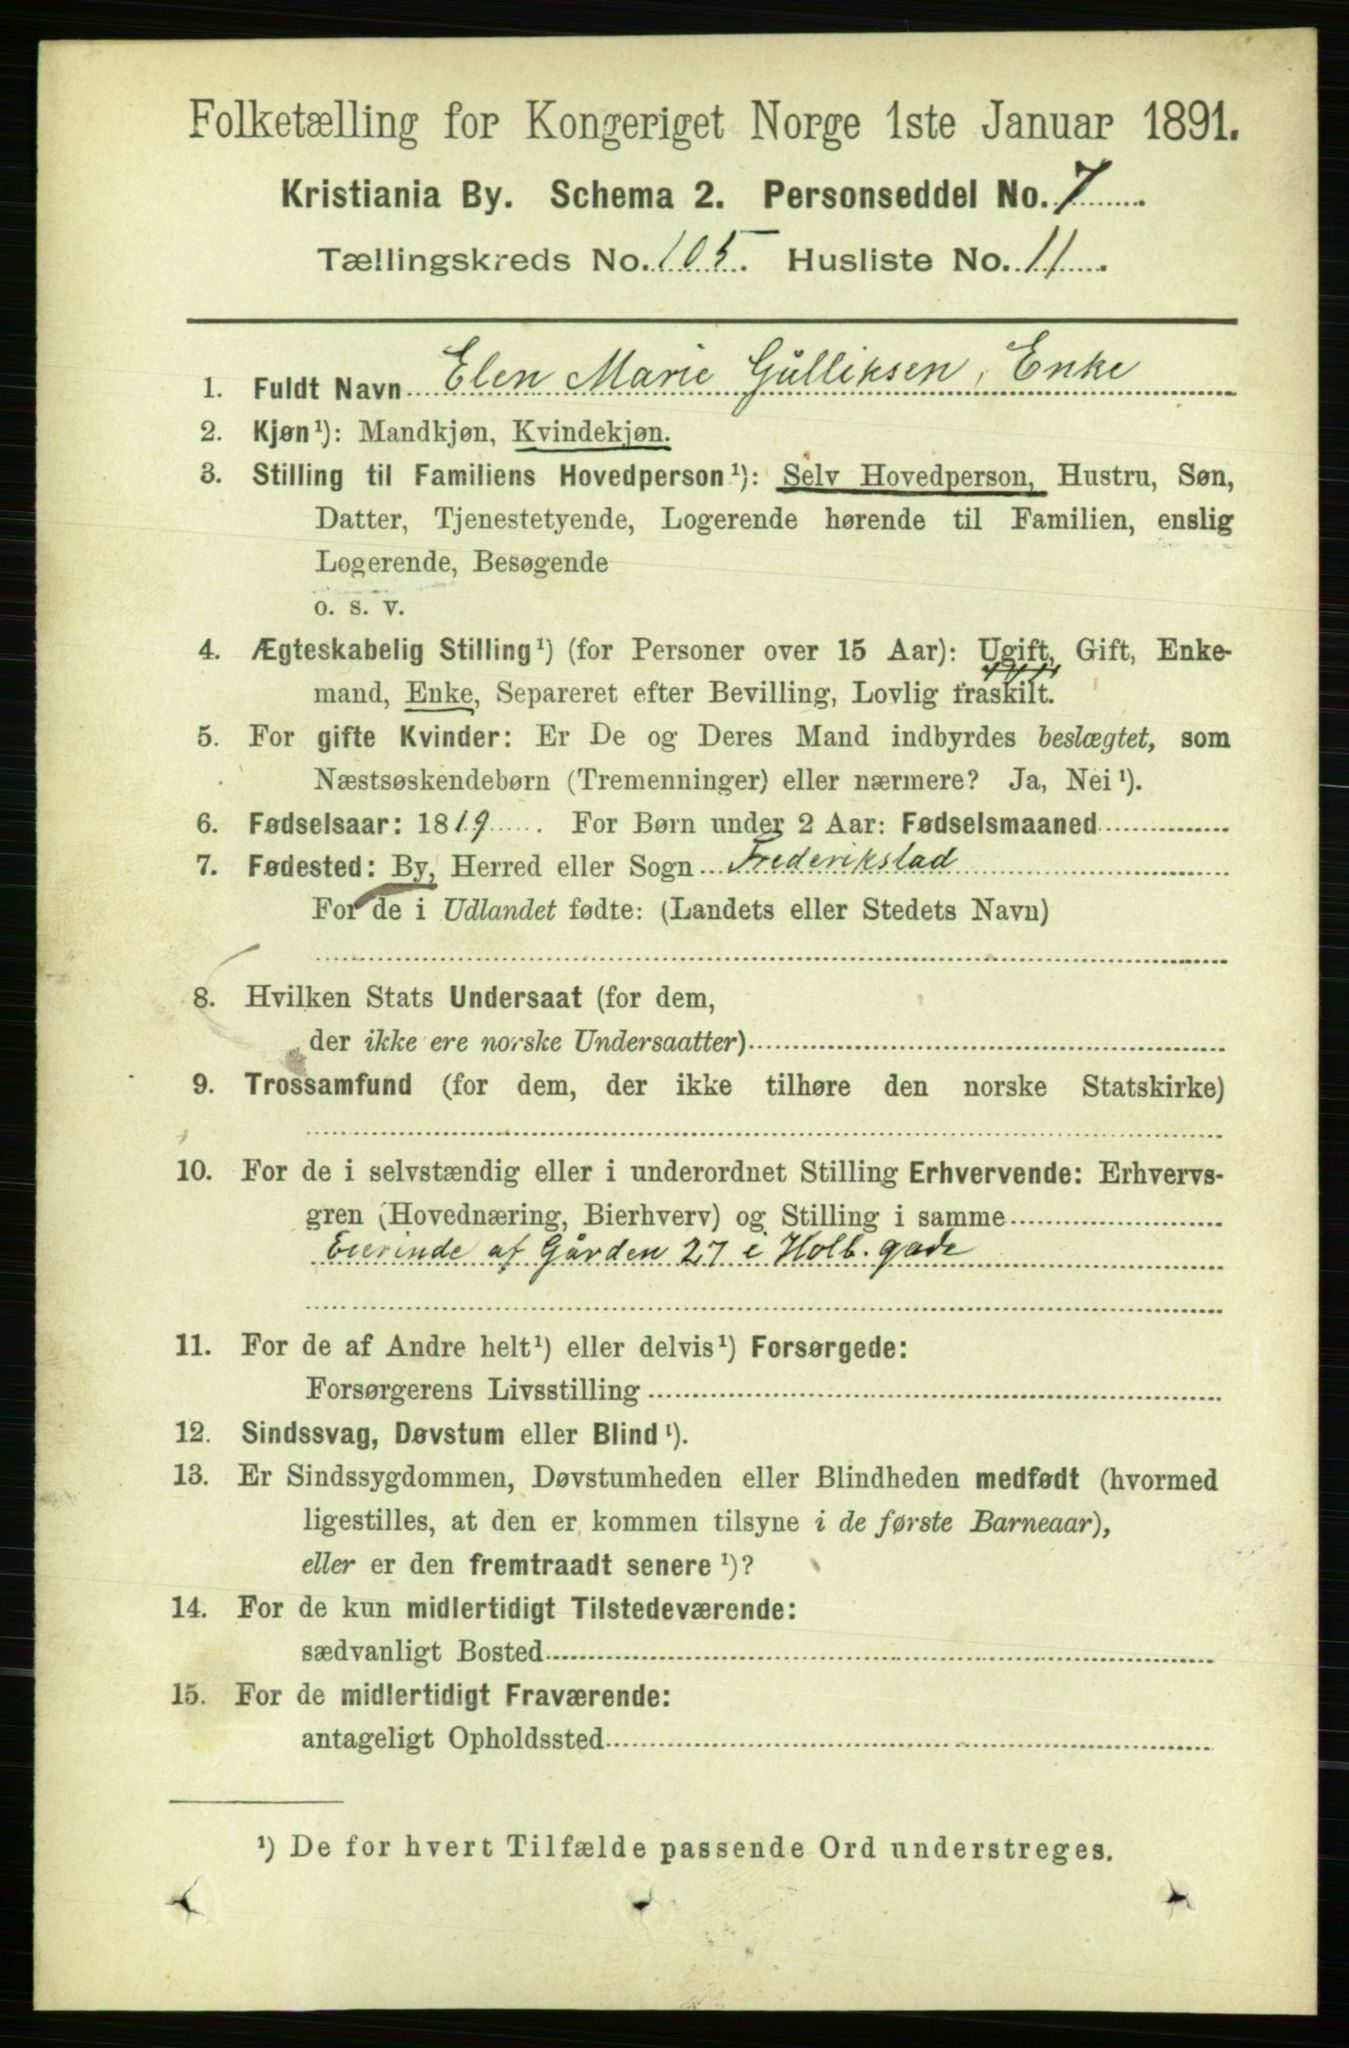 Folketælling for Kongeriget Norge 1ste Januar 1891.
Kristiania By. Schema 2. Personseddel No. 7
Tællingskreds No. 105. Husliste No. 11.
1. Fuldt Navn Elen Marie Gulliksen, Enke
2. Kjøn¹): Mandkjøn, Kvindekjøn.
3. Stilling til Familiens Hovedperson¹): Selv Hovedperson, Hustru, Søn,
Datter, Tjenestetyende, Logerende hørende til Familien, enslig
Logerende, Besøgende
o. s. v.
4. Ægteskabelig Stilling¹) (for Personer over 15 Aar): Ugift, Gift, Enke-
mand, Enke, Separeret efter Bevilling, Lovlig fraskilt.
5. For gifte Kvinder: Er De og Deres Mand indbyrdes beslægtet, som
Næstsøskendebørn (Tremenninger) eller nærmere? Ja, Nei¹).
6. Fødselsaar: 1819. For Børn under 2 Aar: Fødselsmaaned
7. Fødested: By, Herred eller Sogn Frederikstad
For de i Udlandet fødte: (Landets eller Stedets Navn)
8. Hvilken Stats Undersaat (for dem,
der ikke ere norske Undersaatter)
9. Trossamfund (for dem, der ikke tilhøre den norske Statskirke)
10. For de i selvstændig eller i underordnet Stilling Erhvervende: Erhvervs-
gren (Hovednæring, Bierhverv) og Stilling i samme
Eierinde af Gården 27 i Holb. gade
11. For de af Andre helt¹) eller delvis¹) Forsørgede:
Forsørgerens Livsstilling
12. Sindssvag, Døvstum eller Blind¹).
13. Er Sindssygdommen, Døvstumheden eller Blindheden medfødt (hvormed
ligestilles, at den er kommen tilsyne i de første Barneaar),
eller er den fremtraadt senere¹)?
14. For de kun midlertidigt Tilstedeværende:
sædvanligt Bosted
15. For de midlertidigt Fraværende:
antageligt Opholdssted
¹) De for hvert Tilfælde passende Ord understreges.